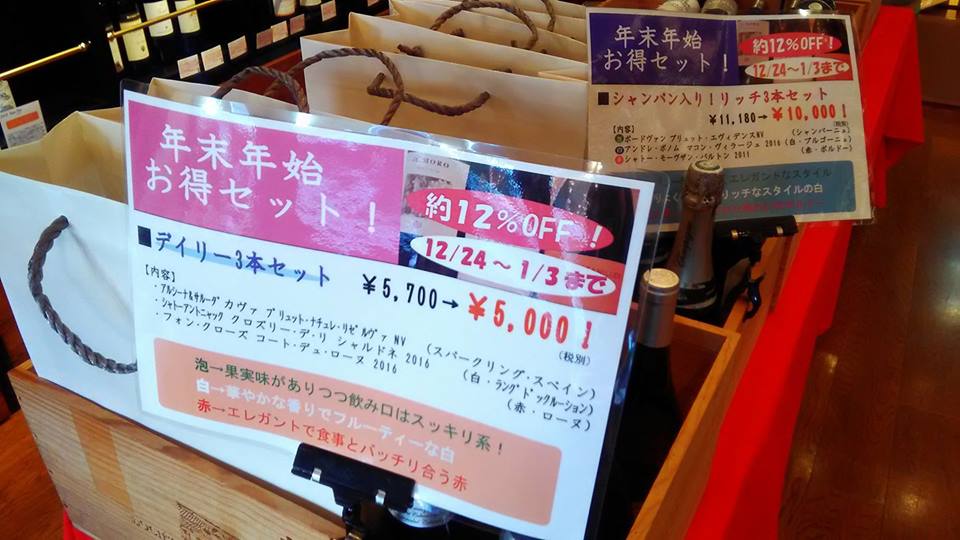 年末年始
お得セット！
約12%OFF！
12/24～1/3まで
■デイリー3本セット
￥5,700→￥5,000！
(税別)
【内容】
・アルシーナ&サルーダ カヴァ ブリュット・ナチュレ・リゼルヴァ NV (スパークリング・スペイン)
・シャトーアントニャック クロズリー・デ・リ シャルドネ 2016 (白・ラングドックルーション)
・フォン・クローズ コート・デュ・ローヌ 2016 (赤・ローヌ)
泡→果実味がありつつ飲み口はスッキリ系！
白→華やかな香りでフルーティーな白
赤→エレガントで食事とバッチリ合う赤
年末年始
お得セット！
約12%OFF！
12/24～1/3まで
■シャンパン入り！リッチ3本セット
￥11,180→￥10,000！
(税別)
【内容】
泡ボードヴァン ブリュット・エヴィデンスNV (シャンパーニュ)
白アンドレ・ボノム マコン・ヴィラージュ 2016 (白・ブルゴーニュ)
赤シャトー・モーヴザン・バルトン 2011 (赤・ボルドー)
エレガントなスタイル
リッチなスタイルの白